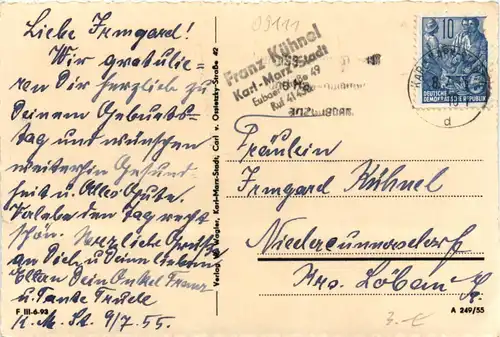 Liebe Irmgard!
Wir gratulie=
ren Dir herzlich zu
Deinem Geburts=
tag und wünschen
weiterhin Gesund=
heit u. Alles Gute.
den Tag recht
schön. Herzliche Grüße
an Dich u. Deine lieben
Eltern Dein Onkel Franz
u. Tante Trude
K. M. St. 9/7. 55.
F III-6-93
Verlag Wagler, Karl-Marx-Stadt, Carl v. Ossietzky-Straße 42
09111
Franz Kühnel
Karl-Marx-Stadt
Eubaer Straße 49
Ruf
10
DEUTSCHE
DEMOKRATISCHE REPUBLIK
d
Fräulein
Irmgard Kühnel
Niedercunnersdorf
Krs. Löbau
A 249/55
3.-€